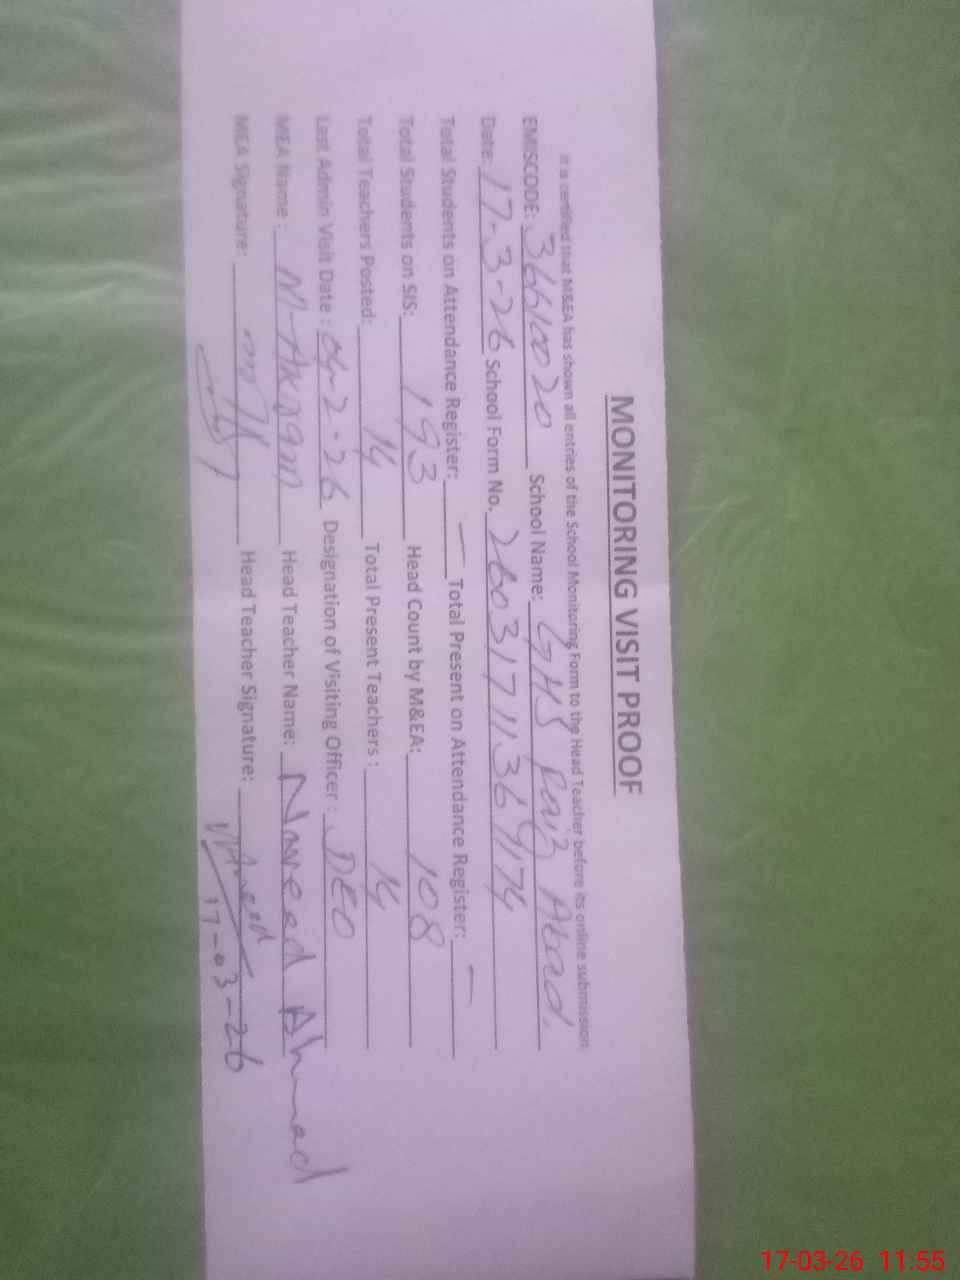 MONITORING VISIT PROOF
It is certified that M&EA has shown all entries of the School Monitoring Form to the Head Teacher before its online submission.
EMISCODE: 36610020 School Name: GHS Faiz Abad.
Date: 17-3-26 School Form No. 26031711369174
Total Students on Attendance Register: — Total Present on Attendance Register: —
Total Students on SIS: 193 Head Count by M&EA: 108
Total Teachers Posted: 14 Total Present Teachers : 14
Last Admin Visit Date : 04-2-26 Designation of Visiting Officer : DEO
MEA Name : M-Akram Head Teacher Name: Naveed Ahmad
MEA Signature: Head Teacher Signature:
17-03-26
17-03-26 11:55